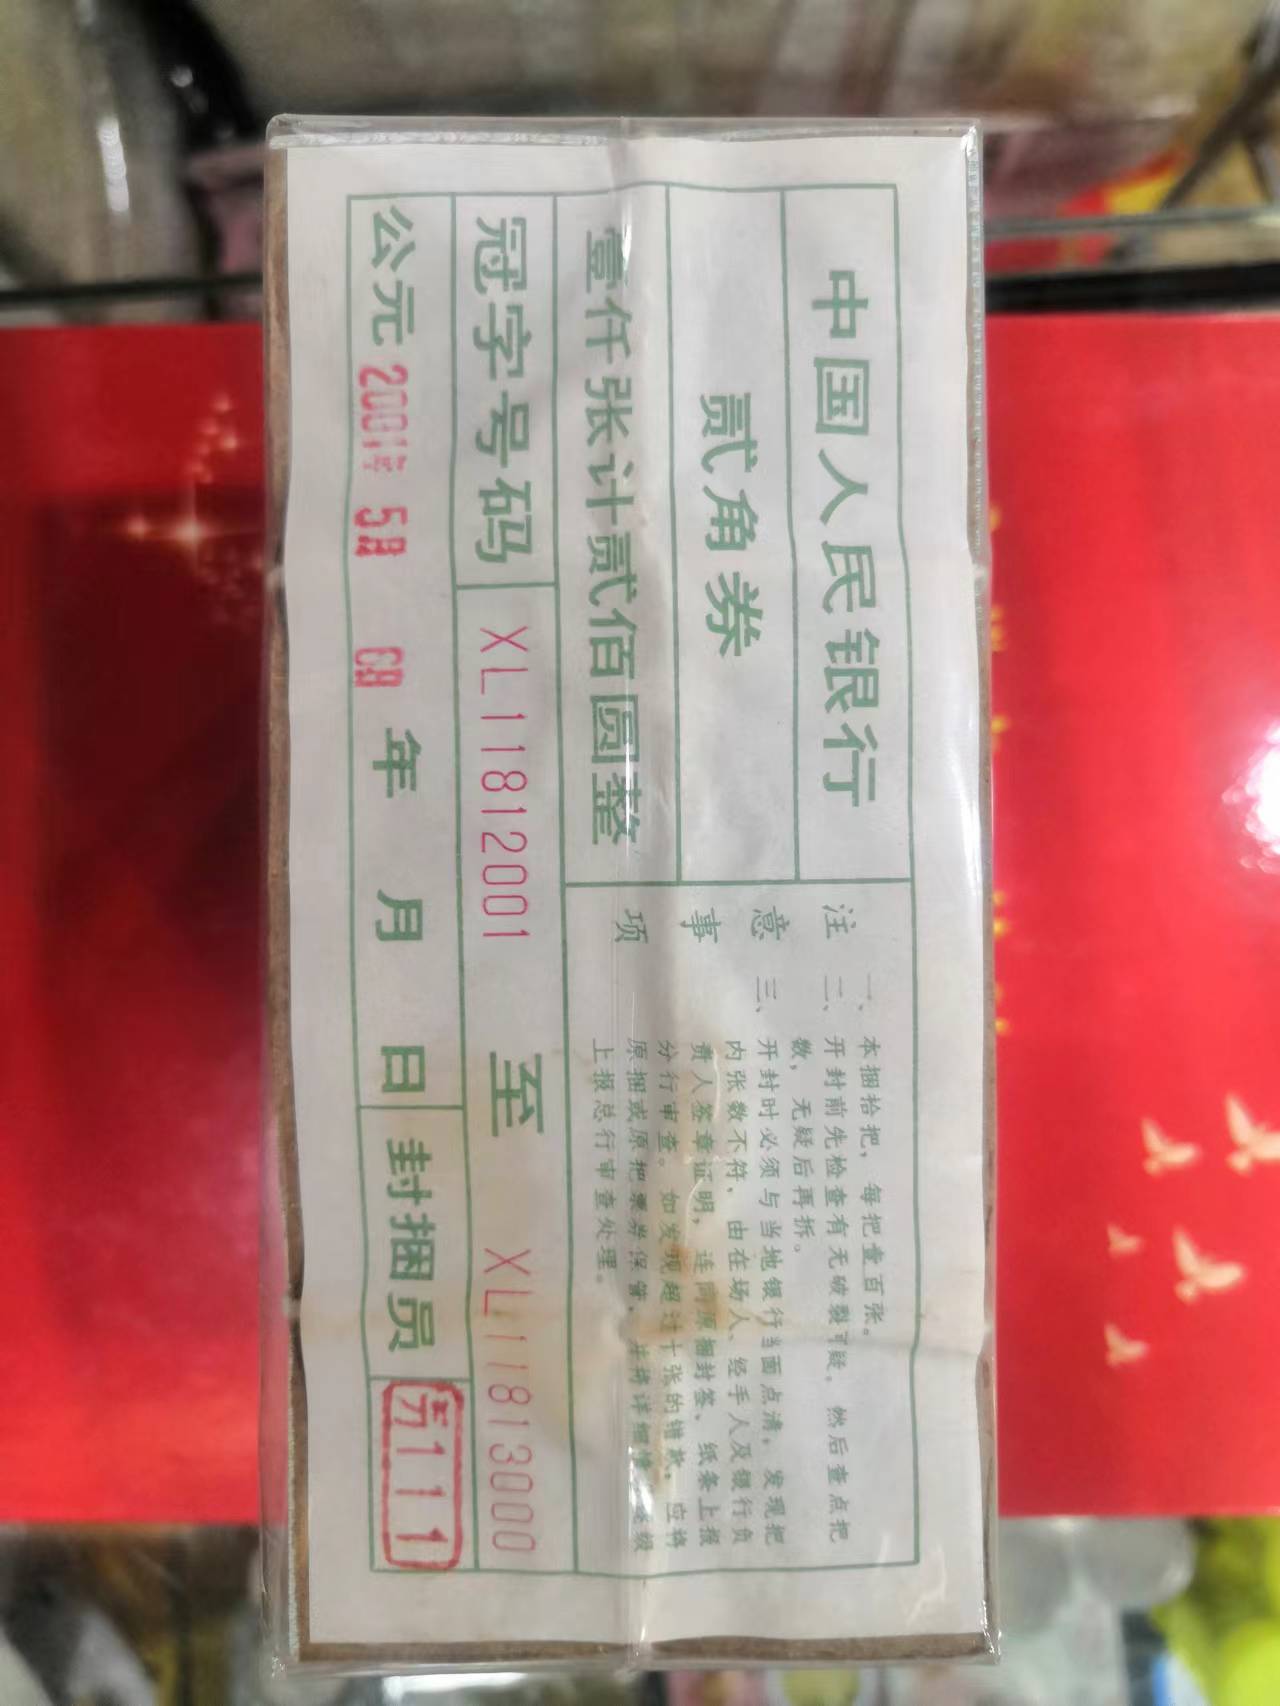 中国人民银行
贰角券
壹仟张计贰佰圆整
注意事项
一、本捆拾把，每把壹百张。
二、开封前先检查有无破裂可疑，然后查点把
数，无疑后再拆。
三、开封时必须与当地银行当面点清，发现把
内张数不符，由在场人、经手人及银行负
责人签章证明，连同原捆封签、纸条上报
分行审查。如发现超过十张的错款，应将
原捆或原把票券保管，并将详细情 逐级
上报总行审查处理。
冠字号码 XL11812001 至 XL11813000
公元 2001年 5月 6日 年 月 日 封捆员 111